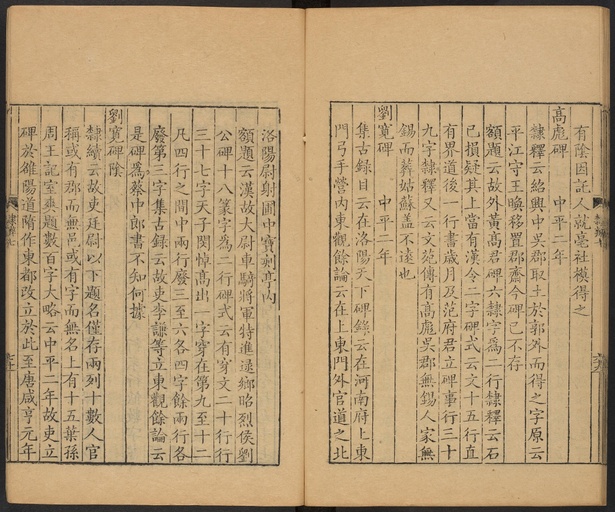 有陰因託人就亳社搨得之
高彪碑　中平二年
隸釋云紹興中吳郡取土於郭外而得之字原云
平江守王㬇移置郡齋今碑已不存
額題云故外黃高君碑六隸字為二行隸釋云石
已損疑其上當有漢令二字碑式云文十五行直
有界道後一行書歲月及范府君立碑事行三十
九字隸釋又云文苑傳有高彪吳郡無錫人家無
錫而葬姑蘇蓋不遠也
劉寬碑　中平二年
集古錄目云在洛陽天下碑錄云在河南府上東
門弓手營內東觀餘論云在上東門外官道之北
洛陽尉射圃中寶剎亭內
額題云漢故大尉車騎將軍特進逯鄉昭烈侯劉
公碑十八篆字為二行碑式云有穿文二十行行
三十七字天子閔悼高出一字穿在第九至十二
凡四行之間中兩行廢三至六各四字餘兩行各
廢第三字集古錄云故吏李謙等立東觀餘論云
是碑為蔡中郎書不知何據
劉寬碑陰
隸續云故吏廷尉以下題名僅存兩列十數人官
稱或有郡而無邑或有字而無名上有十五葉孫
周王記室爽題數百字大略云中平二年故吏立
碑於雒陽道隋作東都改立於此至唐咸亨元年